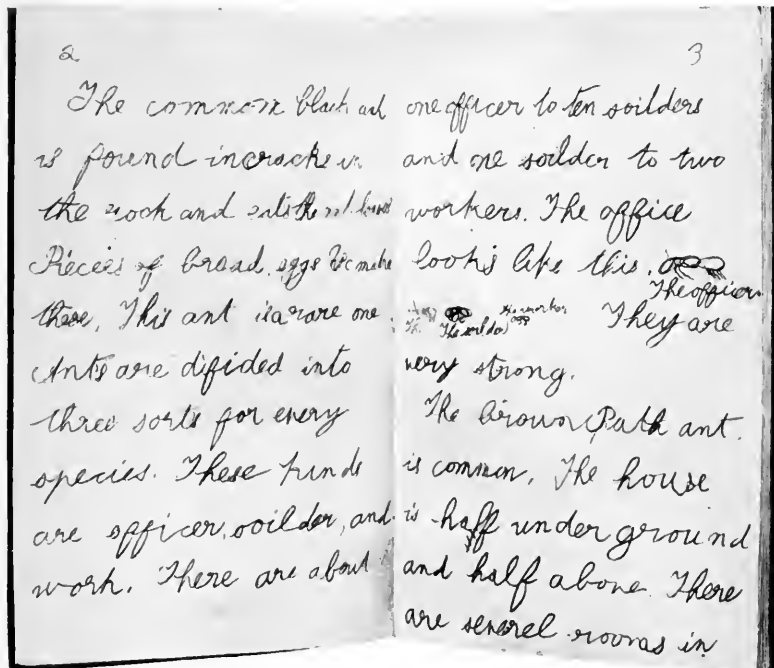 2
The common black ant
is found in cracks in
the rock and eats the
Pieces of bread, eggs We make
there. This ant is a rare one.
Ants are difided into
three sorts for every
species. These kinds
are officer, soilder, and
work. There are about
3
one officer to ten soilders
and one soilder to two
workers. The office
looks like this.
The officer
The soilder The worker They are
very strong.
The brown Path ant.
is common. The house
is half under ground
and half above. There
are severel rooms in